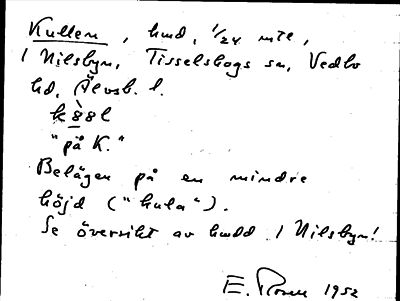 Kullen, hmd, 1/24 mtl,
i Nilsbyn, Tisselskogs sn, Vedbo
hd, Älvsb. l.
"på K."
Belägen på en mindre
höjd ("kula").
Se översikt av hmdd i Nilsbyn!
E. Rosen 1952